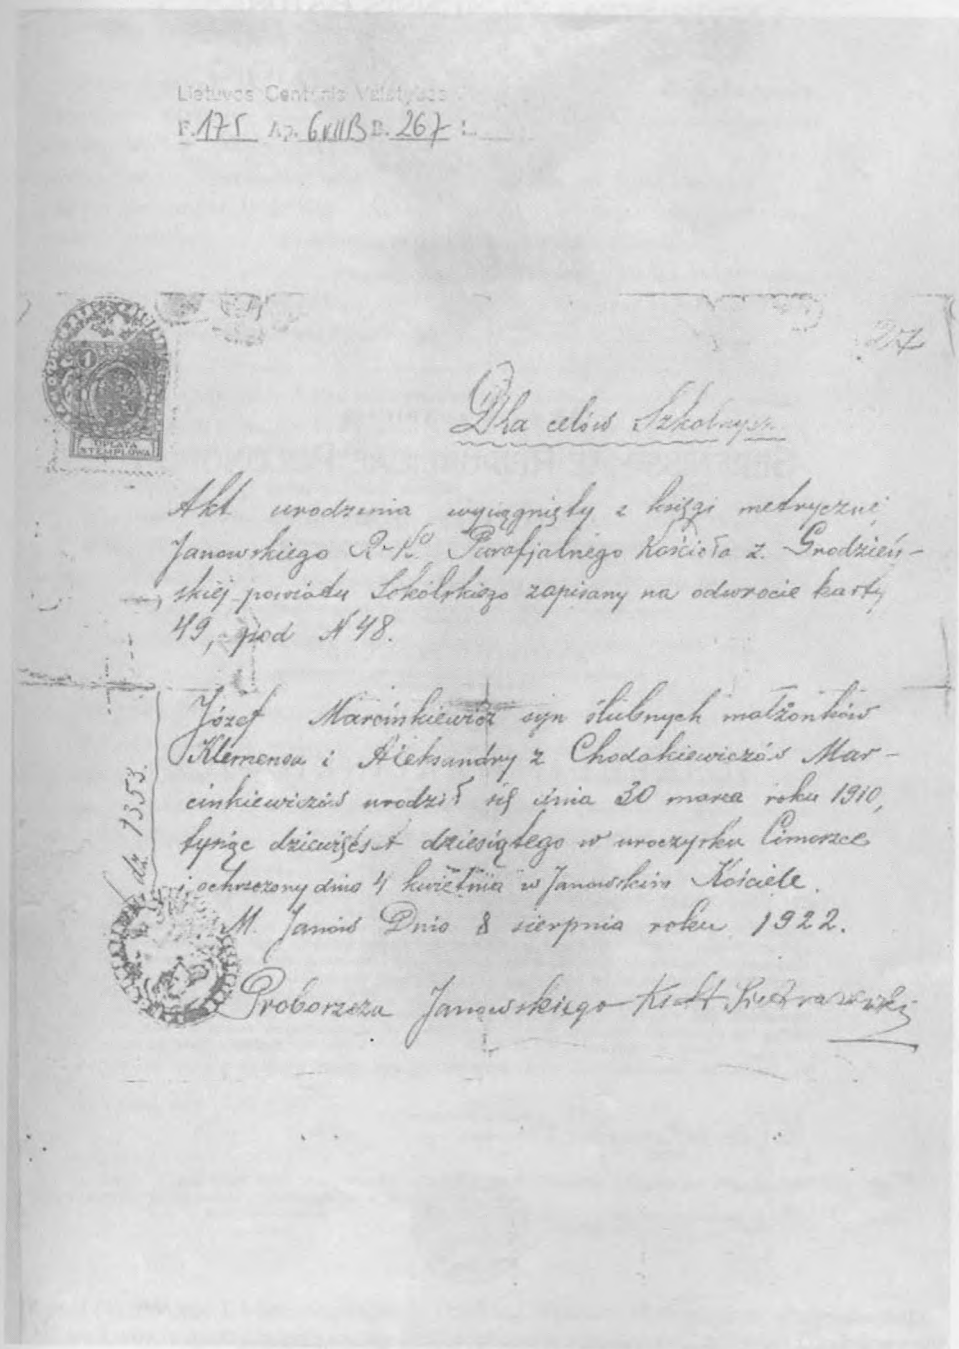 Lietuvos Centrinis Valstybės
F. 175 Ap. 6VIIB B. 267 L.
27
OPŁATA
STEMPLOWA
Dla celów Szkolnych
Akt urodzenia wyciągnięty z księgi metrycznej
Janowskiego R-K° Parafjalnego Kościoła z. Grodzień-
skiej powiatu Sokólskiego zapisany na odwrocie karty
49, pod N 48.
Józef Marcinkiewicz syn ślubnych małżonków
Klemensa i Aleksandry z Chodakiewiczów Mar-
cinkiewiczów urodził się dnia 30 marca roku 1910,
tysiąc dziewięćset dziesiątego w uroczysku Cimoszce
i ochrzczony dnia 4 kwietnia w Janowskim Kościele.
M. Janów Dnia 8 sierpnia roku 1922.
Proboszcza Janowskiego
dz. 1353.